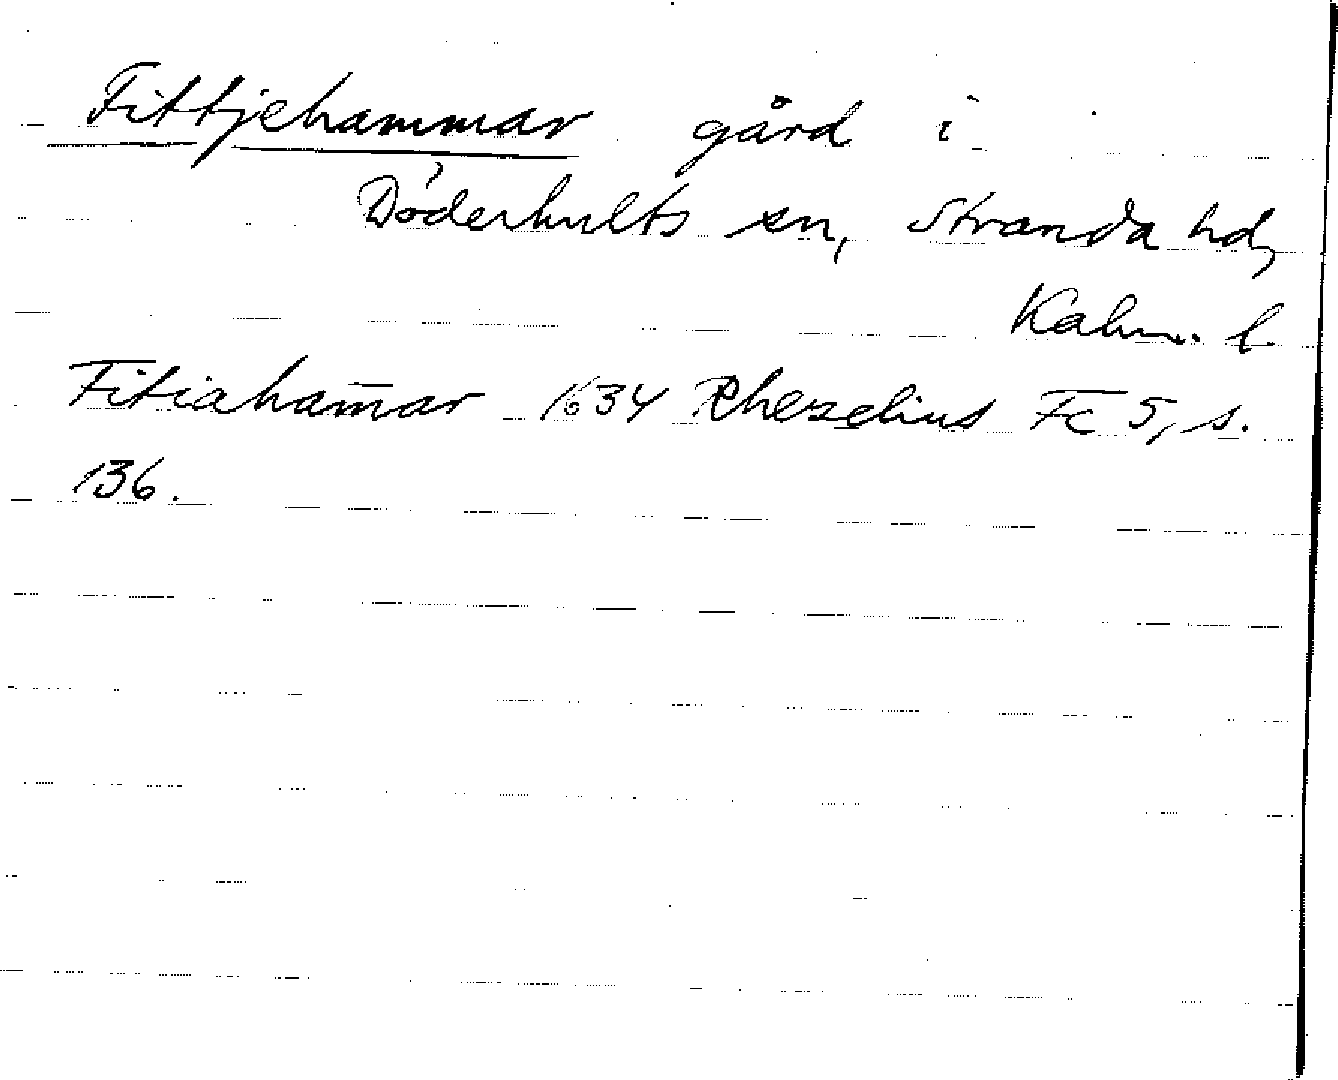 Fittjehammar gård i
Döderhults sn, Stranda hd,
Kalm. l.
Fitiaham̄ar 1634 Rhezelius Fc 5, s.
136.